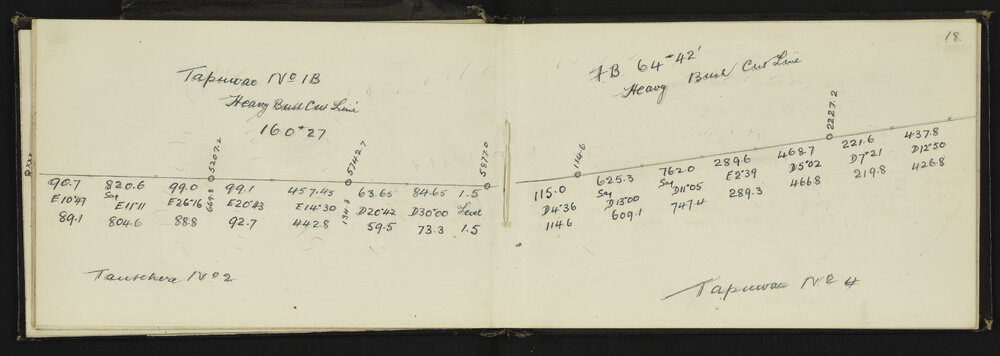 Tapuwae No 1B
Heavy Bush Cut Line
160°27
5207.2 5742.7 5877.0
90.7 820.6 99.0 99.1 457.45 63.65 84.65 1.5
Sag
E10°47 E11°11 E26°16 669.8 E20°43 E14°30 134.3 D20°42 D30°00 Level
89.1 804.6 88.8 92.7 442.8 59.5 73.3 1.5
No 2
18.
FB 64°42'
Heavy Bush Cut Line
114.6 2227.2
115.0 625.3 762.0 289.6 468.7 221.6 437.8
Sag Sag
D4°36 D13°00 D11°05 E2°39 D5°02 D7°21 D12°50
114.6 609.1 747.4 289.3 466.8 219.8 426.8
Tapuwae No 4